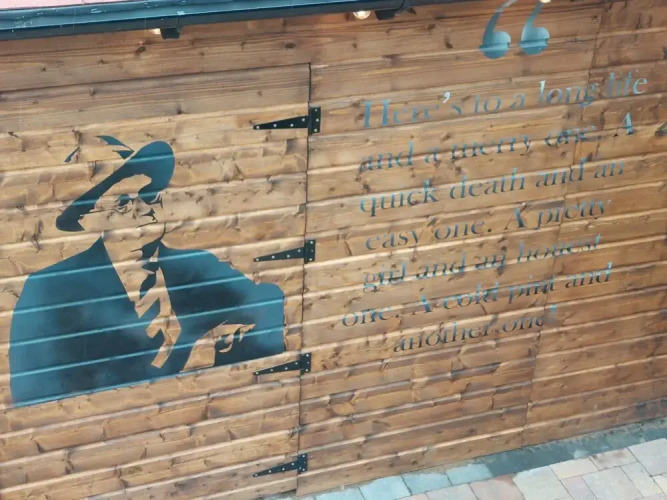 “
Here's to a long life
and a merry one. A
quick death and an
easy one. A pretty
girl and an honest
one. A cold pint and
another one!